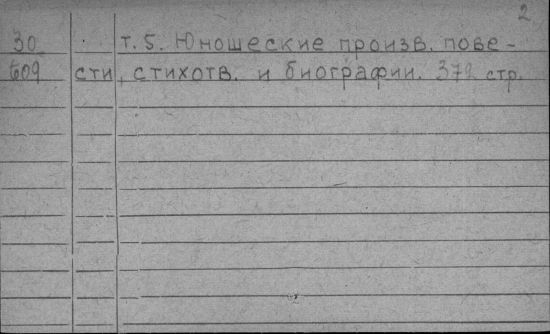 2
30 т. 5. Юношеские произв. пове-
609 сти, стихотв. и биографии. 372 стр.